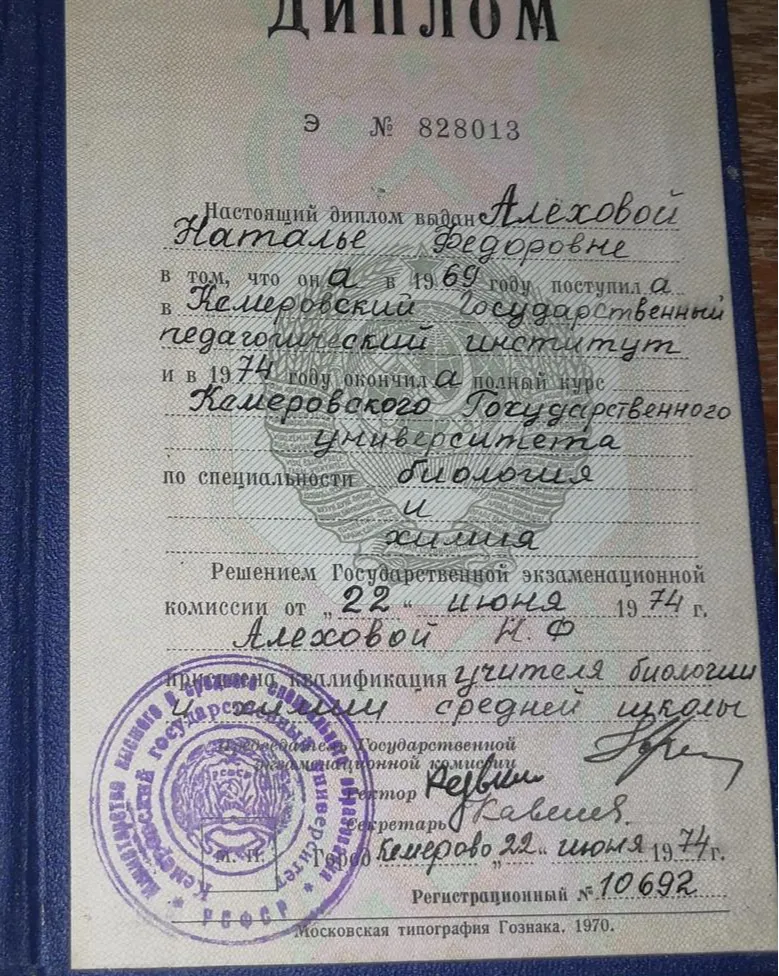 ДИПЛОМ
Э № 828013
Настоящий диплом выдан Алёховой
Наталье Федоровне
в том, что она в 1969 году поступила
в Кемеровский Государственный
педагогический институт
и в 1974 году окончила полный курс
Кемеровского Государственного
университета
по специальности биология
и
химия
Решением Государственной экзаменационной
комиссии от „22“ июня 1974 г.
Алеховой Н. Ф
присвоена квалификация учителя биологии
и химии средней школы
Председатель Государственной
экзаменационной комиссии
Ректор
Секретарь
М. П.
Город Кемерово „22“ июня 1974 г.
Регистрационный № 10692
Московская типография Гознака. 1970.
Министерство высшего и среднего специального образования
РСФСР
Кемеровский государственный университет
РСФСР